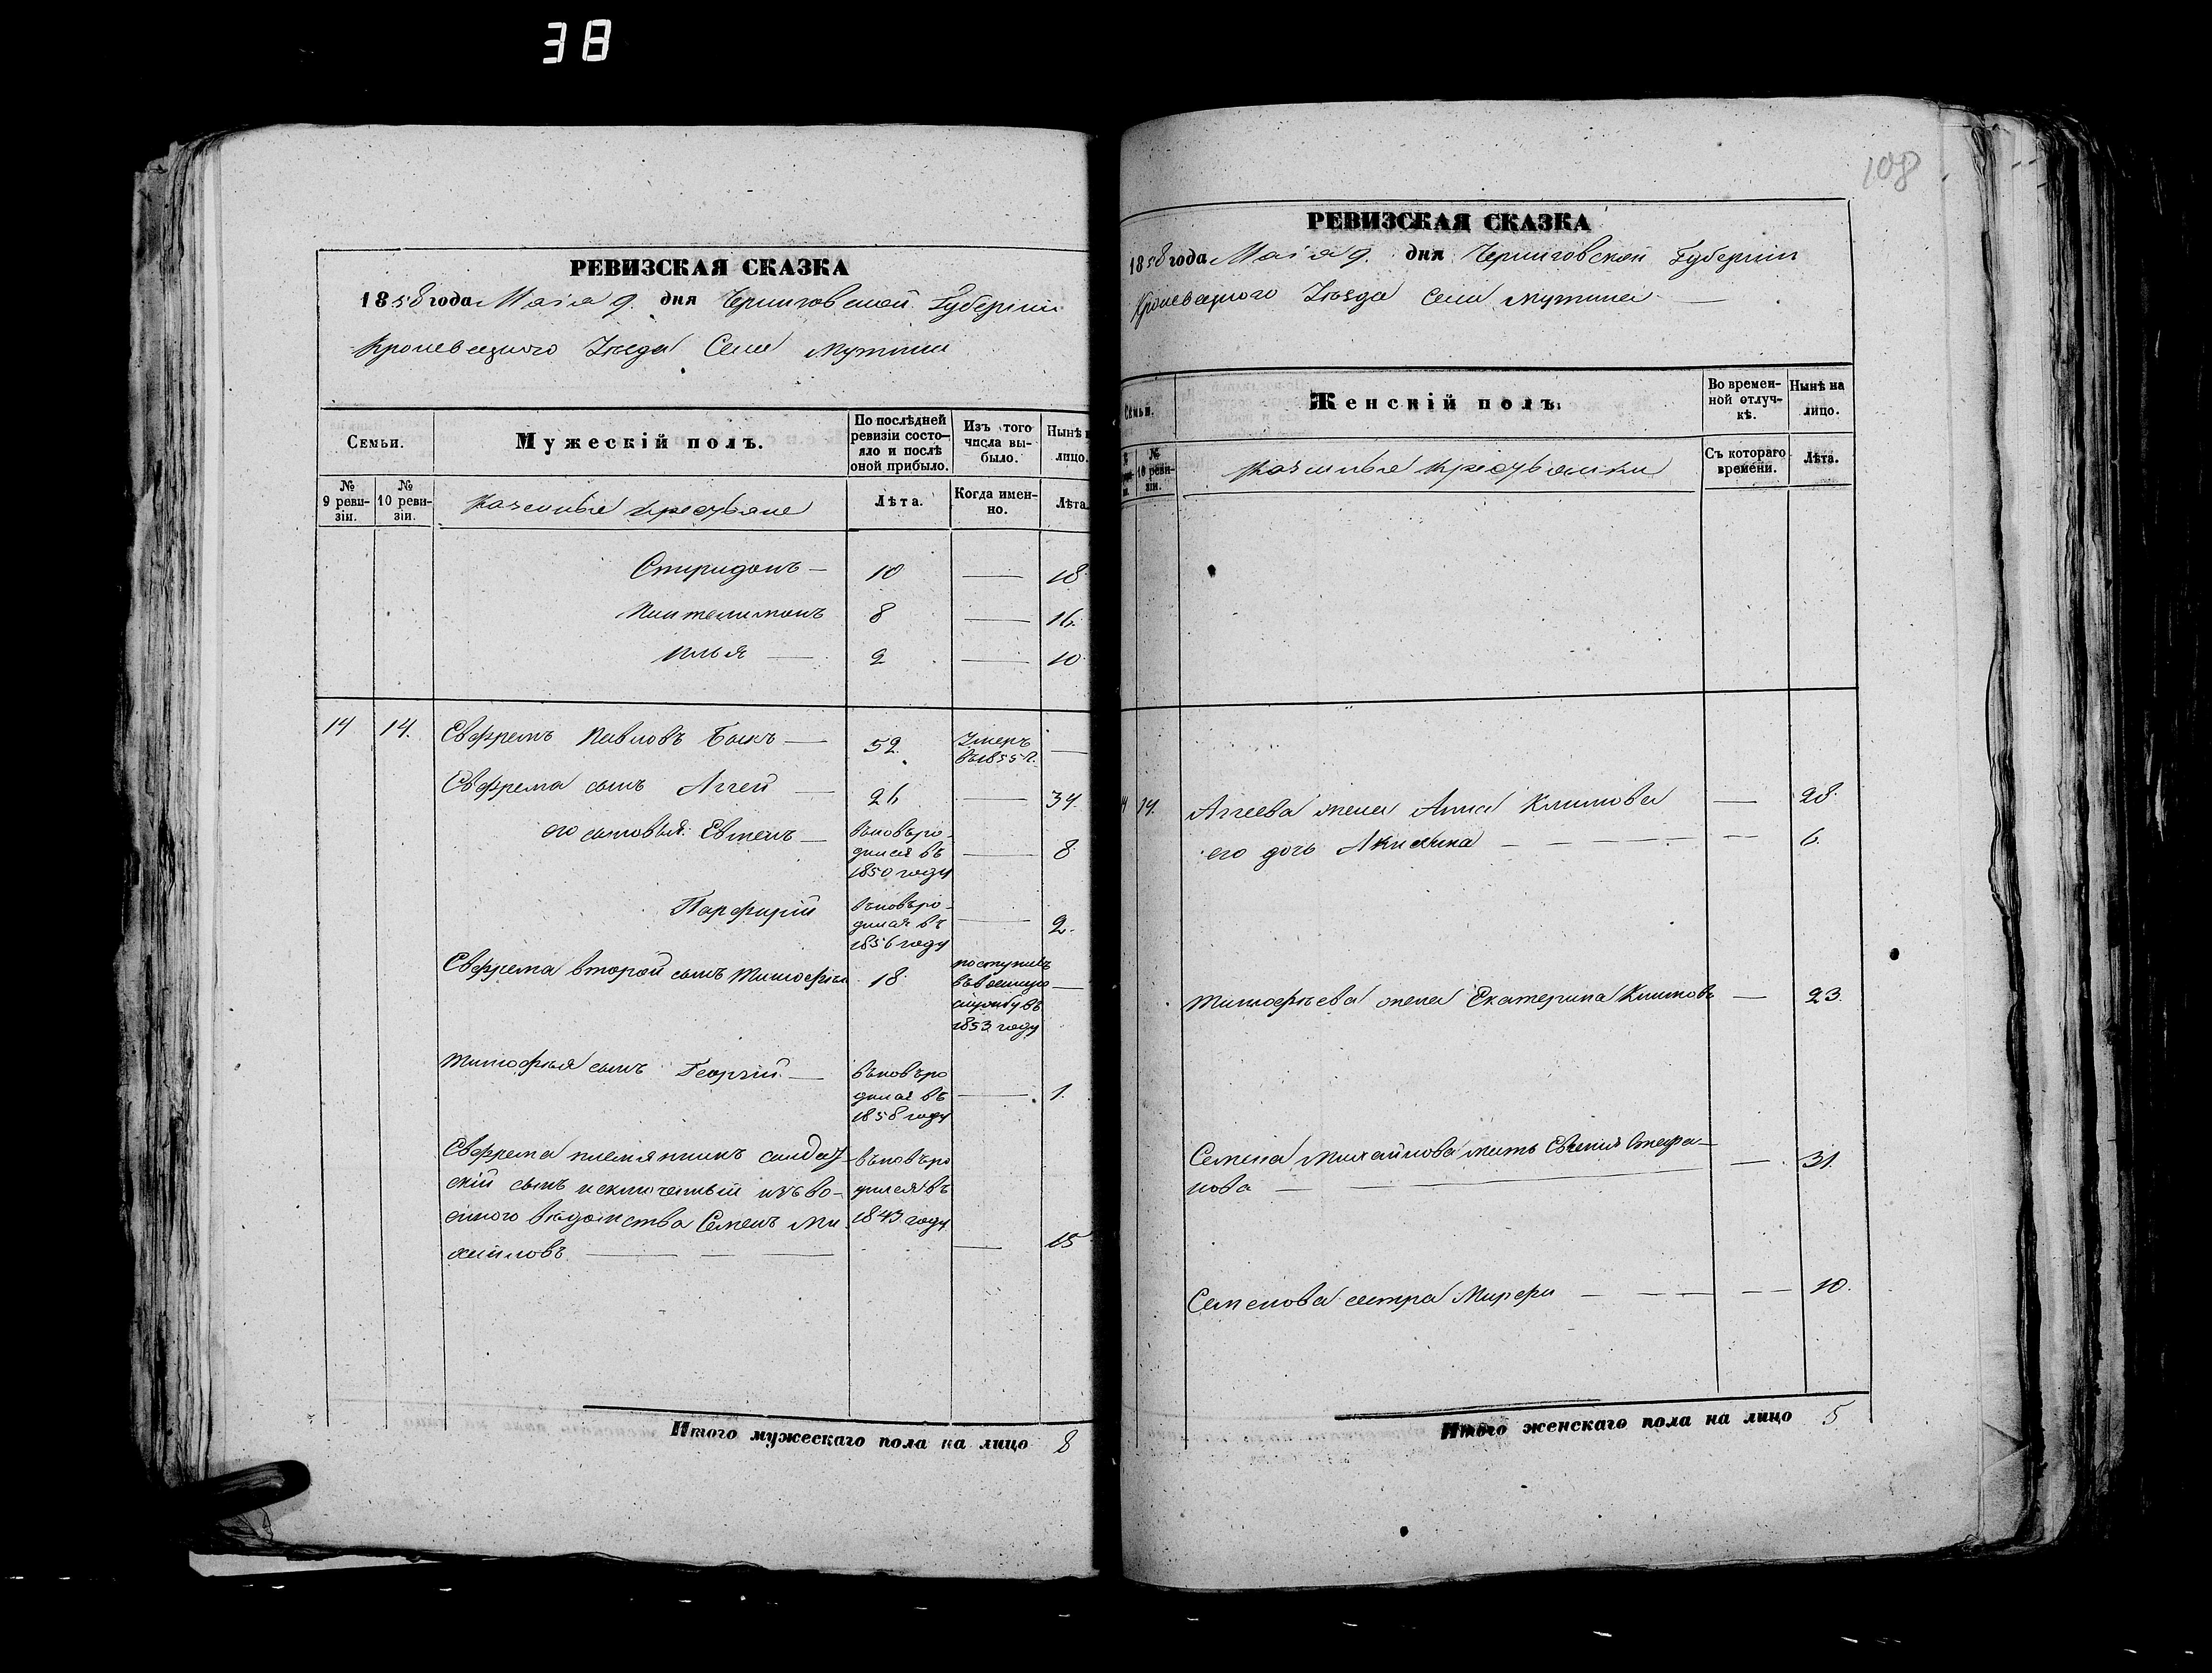 38
РЕВИЗСКАЯ СКАЗКА
1858 года Маія 9. дня Черниговской Губерніи
Кролевецкого Уѣзда Села Мутина
Семьи.
Мужескій полъ.
По послѣдней ревизіи состояло и послѣ оной прибыло.
Изъ того числа выбыло.
Нынѣ
лицо.
№ 9 ревизіи.
№ 10 ревизіи.
Казенные крестьяне
Лѣта.
Когда именно.
Лѣта.
Спиридонъ — 10 — 18
Пантелимонъ 8 — 16.
Илья — 2 — 10
14 14. Евфремъ Павловъ Быкъ — 52. Умеръ въ 1855 г. —
Евфрема сынъ Аггей — 26 — 34.
его сыновья: Евтенъ — вновь ро-
дился въ — 8
1850 году
Парфирій вновь ро-
дился въ — 2.
1856 году
Евфрема второй сынъ Тимофей 18 поступилъ
въ военную —
службу въ
1853 году
Тимофея сынъ Георгій — вновь ро
дился въ — 1.
1858 году
Евфрема племянникъ солдат- вновь ро
скій сынъ исключенный изъ во- дился въ
еннаго вѣдомства Семенъ Ми- 1843 году
хайловъ — — — 15
Итого мужескаго пола на лицо 8
108
РЕВИЗСКАЯ СКАЗКА
1858 года Маія 9. дня Черниговской Губерніи
Кролевецкого Уѣзда Села Мутина —
Семьи.
Женскій полъ.
Во временной отлучкѣ.
Нынѣ на лицо.
№ 10 ревизіи.
Казенные крестьянки
Съ котораго времени.
Лѣта.
14. Аггеева жена Анна Климова — 28.
его дочь Акилина — — — 6.
Тимофеева жена Екатерина Климов — 23.
Семена Михайлова мать Евгенія Стефа-
нова — — 31.
Семенова сестра Марфа — — — 10.
Итого женскаго пола на лицо 5